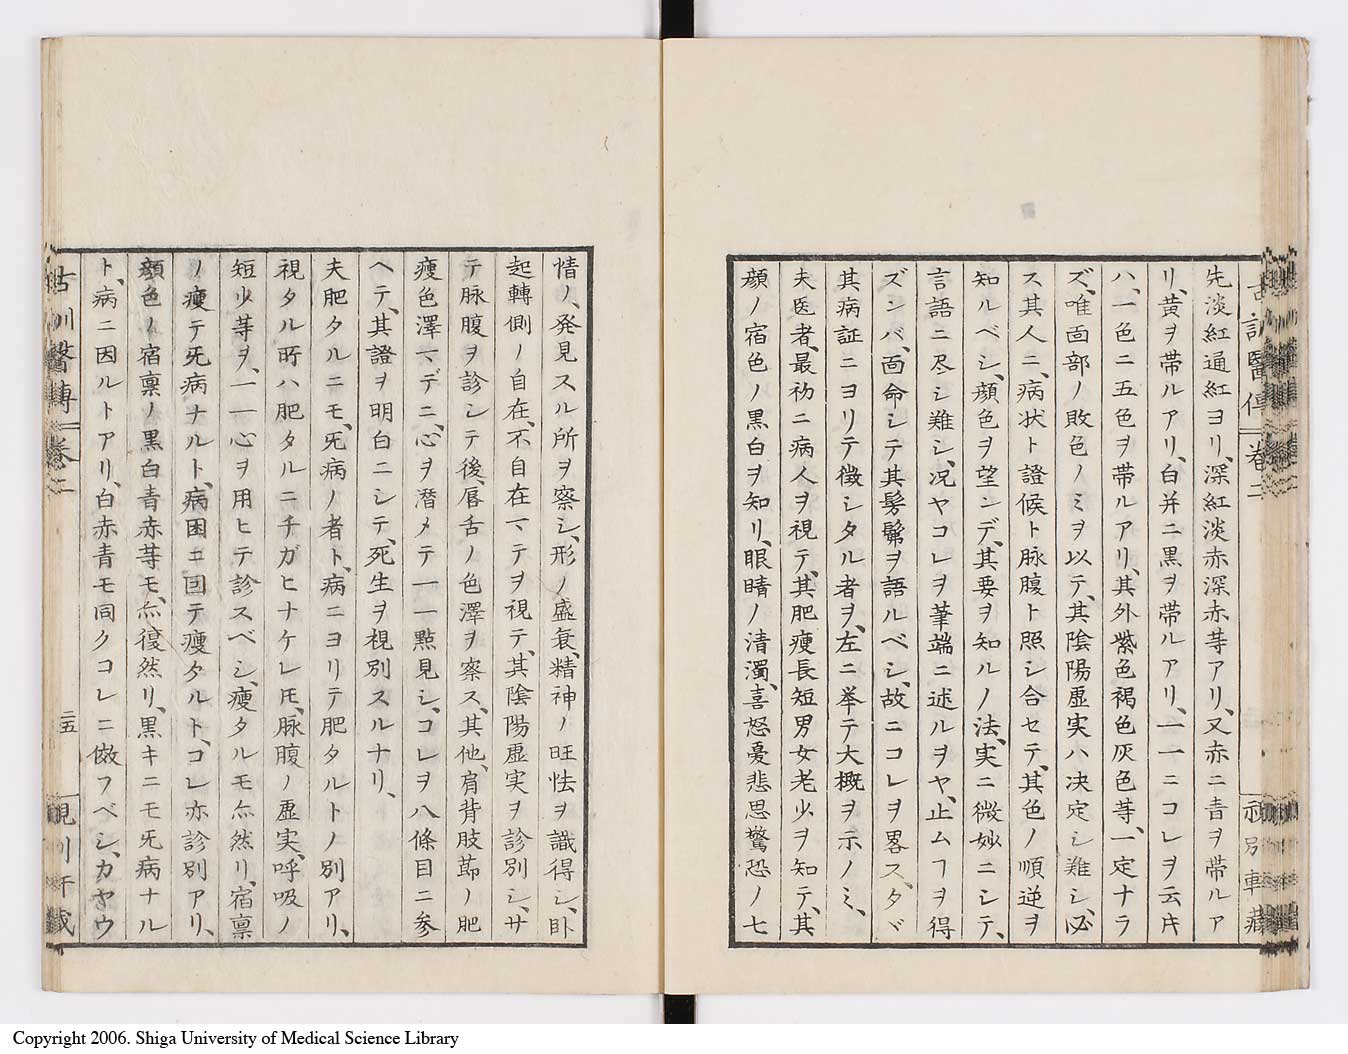 先淡紅通紅ヨリ、深紅淡赤深赤等アリ、又赤ニ青ヲ帯ルア
リ、黄ヲ帯ルアリ、白并ニ黒ヲ帯ルアリ、一一ニコレヲ云キ
ハ、一色ニ五色ヲ帯ルアリ、其外紫色褐色灰色等、一定ナラ
ズ、唯面部ノ敗色ノミヲ以テ、其陰陽虚実ハ決定シ難シ、必
ス其人ニ、病状ト證候ト脉腹ト照シ合セテ、其色ノ順逆ヲ
知ルベシ、顔色ヲ望ンデ、其要ヲ知ルノ法、実ニ微妙ニシテ、
言語ニ尽シ難シ、况ヤコレヲ筆端ニ述ルヲヤ、止ムヿヲ得
ズンバ、面命シテ其髣髴ヲ語ルベシ、故ニコレヲ畧ス、タヾ
其病証ニヨリテ徴シタル者ヲ、左ニ挙テ大概ヲ示ノミ、
夫医者、最初ニ病人ヲ視テ、其肥瘦長短男女老少ヲ知テ、其
顔ノ宿色ノ黒白ヲ知リ、眼睛ノ清濁、喜怒憂悲思驚恐ノ七
情ノ、発見スル所ヲ察シ、形ノ盛衰、精神ノ旺怯ヲ識得シ、卧
起轉側ノ自在、不自在マテヲ視テ、其陰陽虚実ヲ診別シ、サ
テ脉腹ヲ診シテ後、唇舌ノ色澤ヲ察ス、其他、肩背肢節ノ肥
瘦色澤マデニ、心ヲ潜メテ一一點見シ、コレヲ八條目ニ参
ヘテ、其證ヲ明白ニシテ、死生ヲ視別スルナリ、
夫肥タルニモ、旡病ノ者ト、病ニヨリテ肥タルトノ別アリ、
視タル所ハ肥タルニチガヒナケレ𪜈、脉腹ノ虚実、呼吸ノ
短少等ヲ、一一心ヲ用ヒテ診スベシ、瘦タルモ亦然リ、宿稟
ノ瘦テ旡病ナルト、病困ニ因テ瘦タルト、コレ亦診別アリ、
顔色ノ宿稟ノ黒白青赤等モ、亦復然リ、黒キニモ旡病ナル
ト、病ニ因ルトアリ、白赤青モ同クコレニ倣フベシ、カヤウ
古訓醫傳 卷二
二五